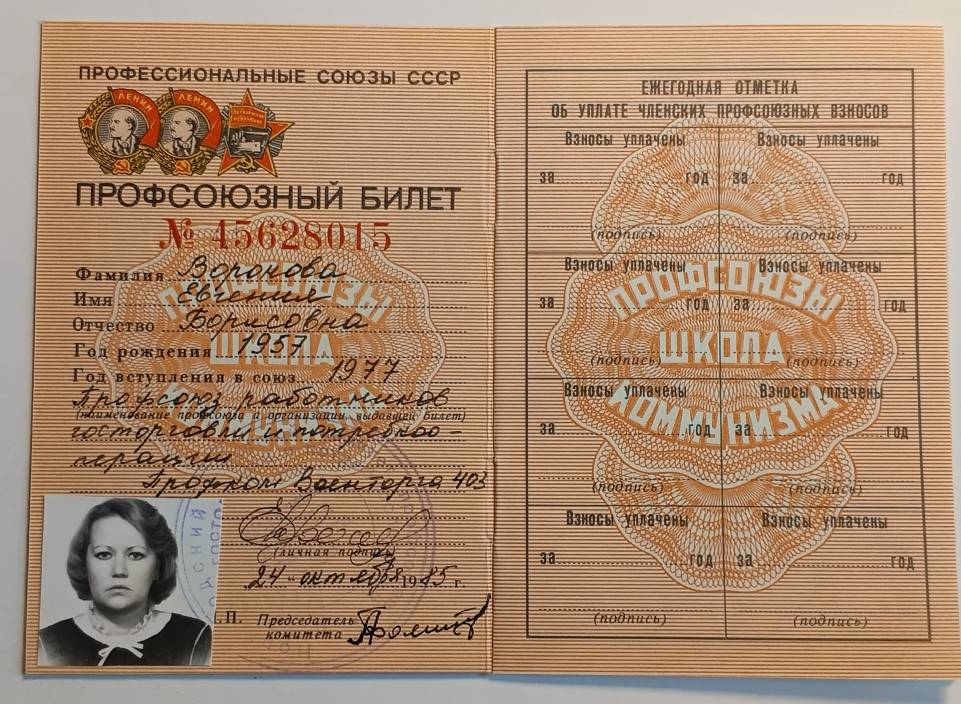 ПРОФЕССИОНАЛЬНЫЕ СОЮЗЫ СССР
ЛЕНИН ЛЕНИН
ПРОФСОЮЗНЫЙ БИЛЕТ
№ 45628015
Фамилия Воронова
Имя Евгения
Отчество Борисовна
Год рождения 1957
Год вступления в союз 1977
Профсоюз работников
(наименование профсоюза и организации, выдавшей билет)
госторговли и потребкоо-
перации
Профком Военторга 403
(личная подпись)
24 " октября 1985 г.
М.П. Председатель
комитета
ПРОФСОЮЗЫ
ШКОЛА
ЕЖЕГОДНАЯ ОТМЕТКА
ОБ УПЛАТЕ ЧЛЕНСКИХ ПРОФСОЮЗНЫХ ВЗНОСОВ
Взносы уплачены Взносы уплачены
за год за год
(подпись) (подпись)
Взносы уплачены Взносы уплачены
за год за год
(подпись) (подпись)
Взносы уплачены Взносы уплачены
за год за год
(подпись) (подпись)
Взносы уплачены Взносы уплачены
за год за год
(подпись) (подпись)
ПРОФСОЮЗЫ
ШКОЛА
КОММУНИЗМА